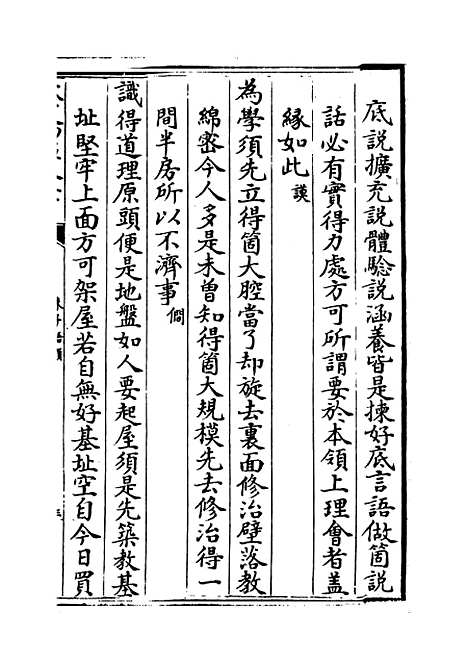 底説擴充説體驗説涵養皆是揀好底言語做箇説
話必有實得力處方可所謂要於本領上理會者蓋
縁如此 謨
為學須先立得箇大腔當了却旋去裏面修治壁落教
綿密今人多是未曽知得箇大規模先去修治得一
間半房所以不濟事 僩
識得道理原頭便是地盤如人要起屋須是先築教基
址堅牢上面方可架屋若自無好基址空自今日買